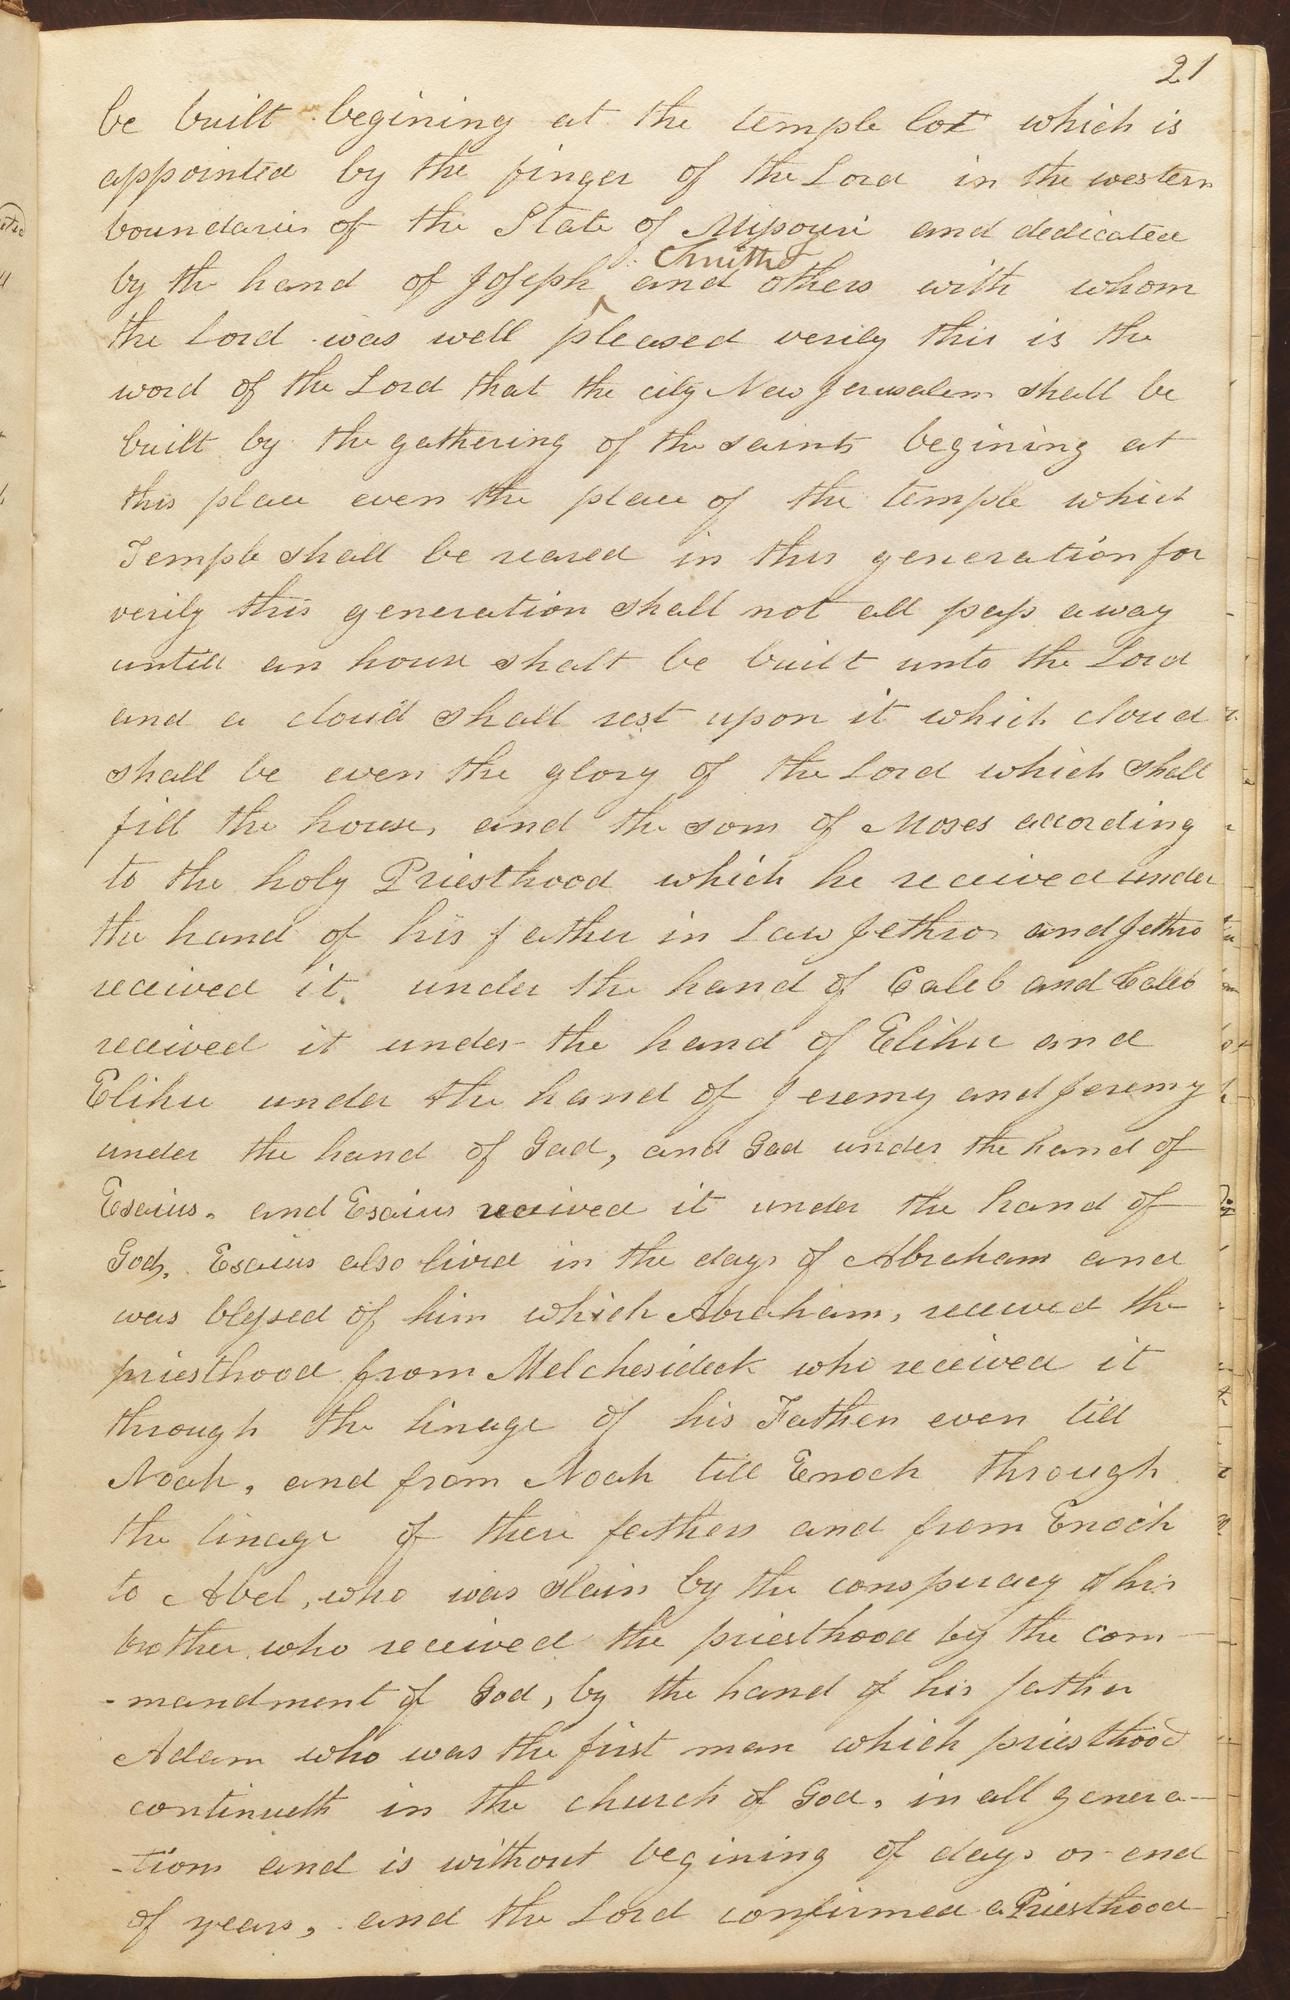 21
be built begining at the temple lot which is
appointed by the finger of the Lord in the western
boundaries of the State of Missouri and dedicated
Smith
by the hand of Joseph ^ and others with whom
the Lord was well pleased verily this is the
word of the Lord that the city New Jerusalem shall be
built by the gathering of the saints begining at
this place even the place of the temple which
Temple shall be reared in this generation for
verily this generation shall not all pass away
untill an house shall be built unto the Lord
and a cloud shall rest upon it which cloud
shall be even the glory of the Lord which shall
fill the house, and the sons of Moses according
to the holy Priesthood which he received under
the hand of his father in Law Jethro and Jethro
received it under the hand of Caleb and Caleb
received it under the hand of Elihu and
Elihu under the hand of Jeremy and Jeremy
under the hand of Gad, and Gad under the hand of
Esaius. and Esaius received it under the hand of
God, Esaius also lived in the days of Abraham and
was blessed of him which Abraham, received the
priesthood from Melchesideck who received it
through the linage of his Fathers even till
Noah, and from Noah till Enoch through
the linage of there fathers and from Enoch
to Abel, who was slain by the conspiracy of his
brother, who received the priesthood by the com-
-mandment of God, by the hand of his father
Adam who was the first man which priesthood
continueth in the church of God, in all genera-
-tions and is without begining of days or end
of years, and the Lord confirmed a Priesthood